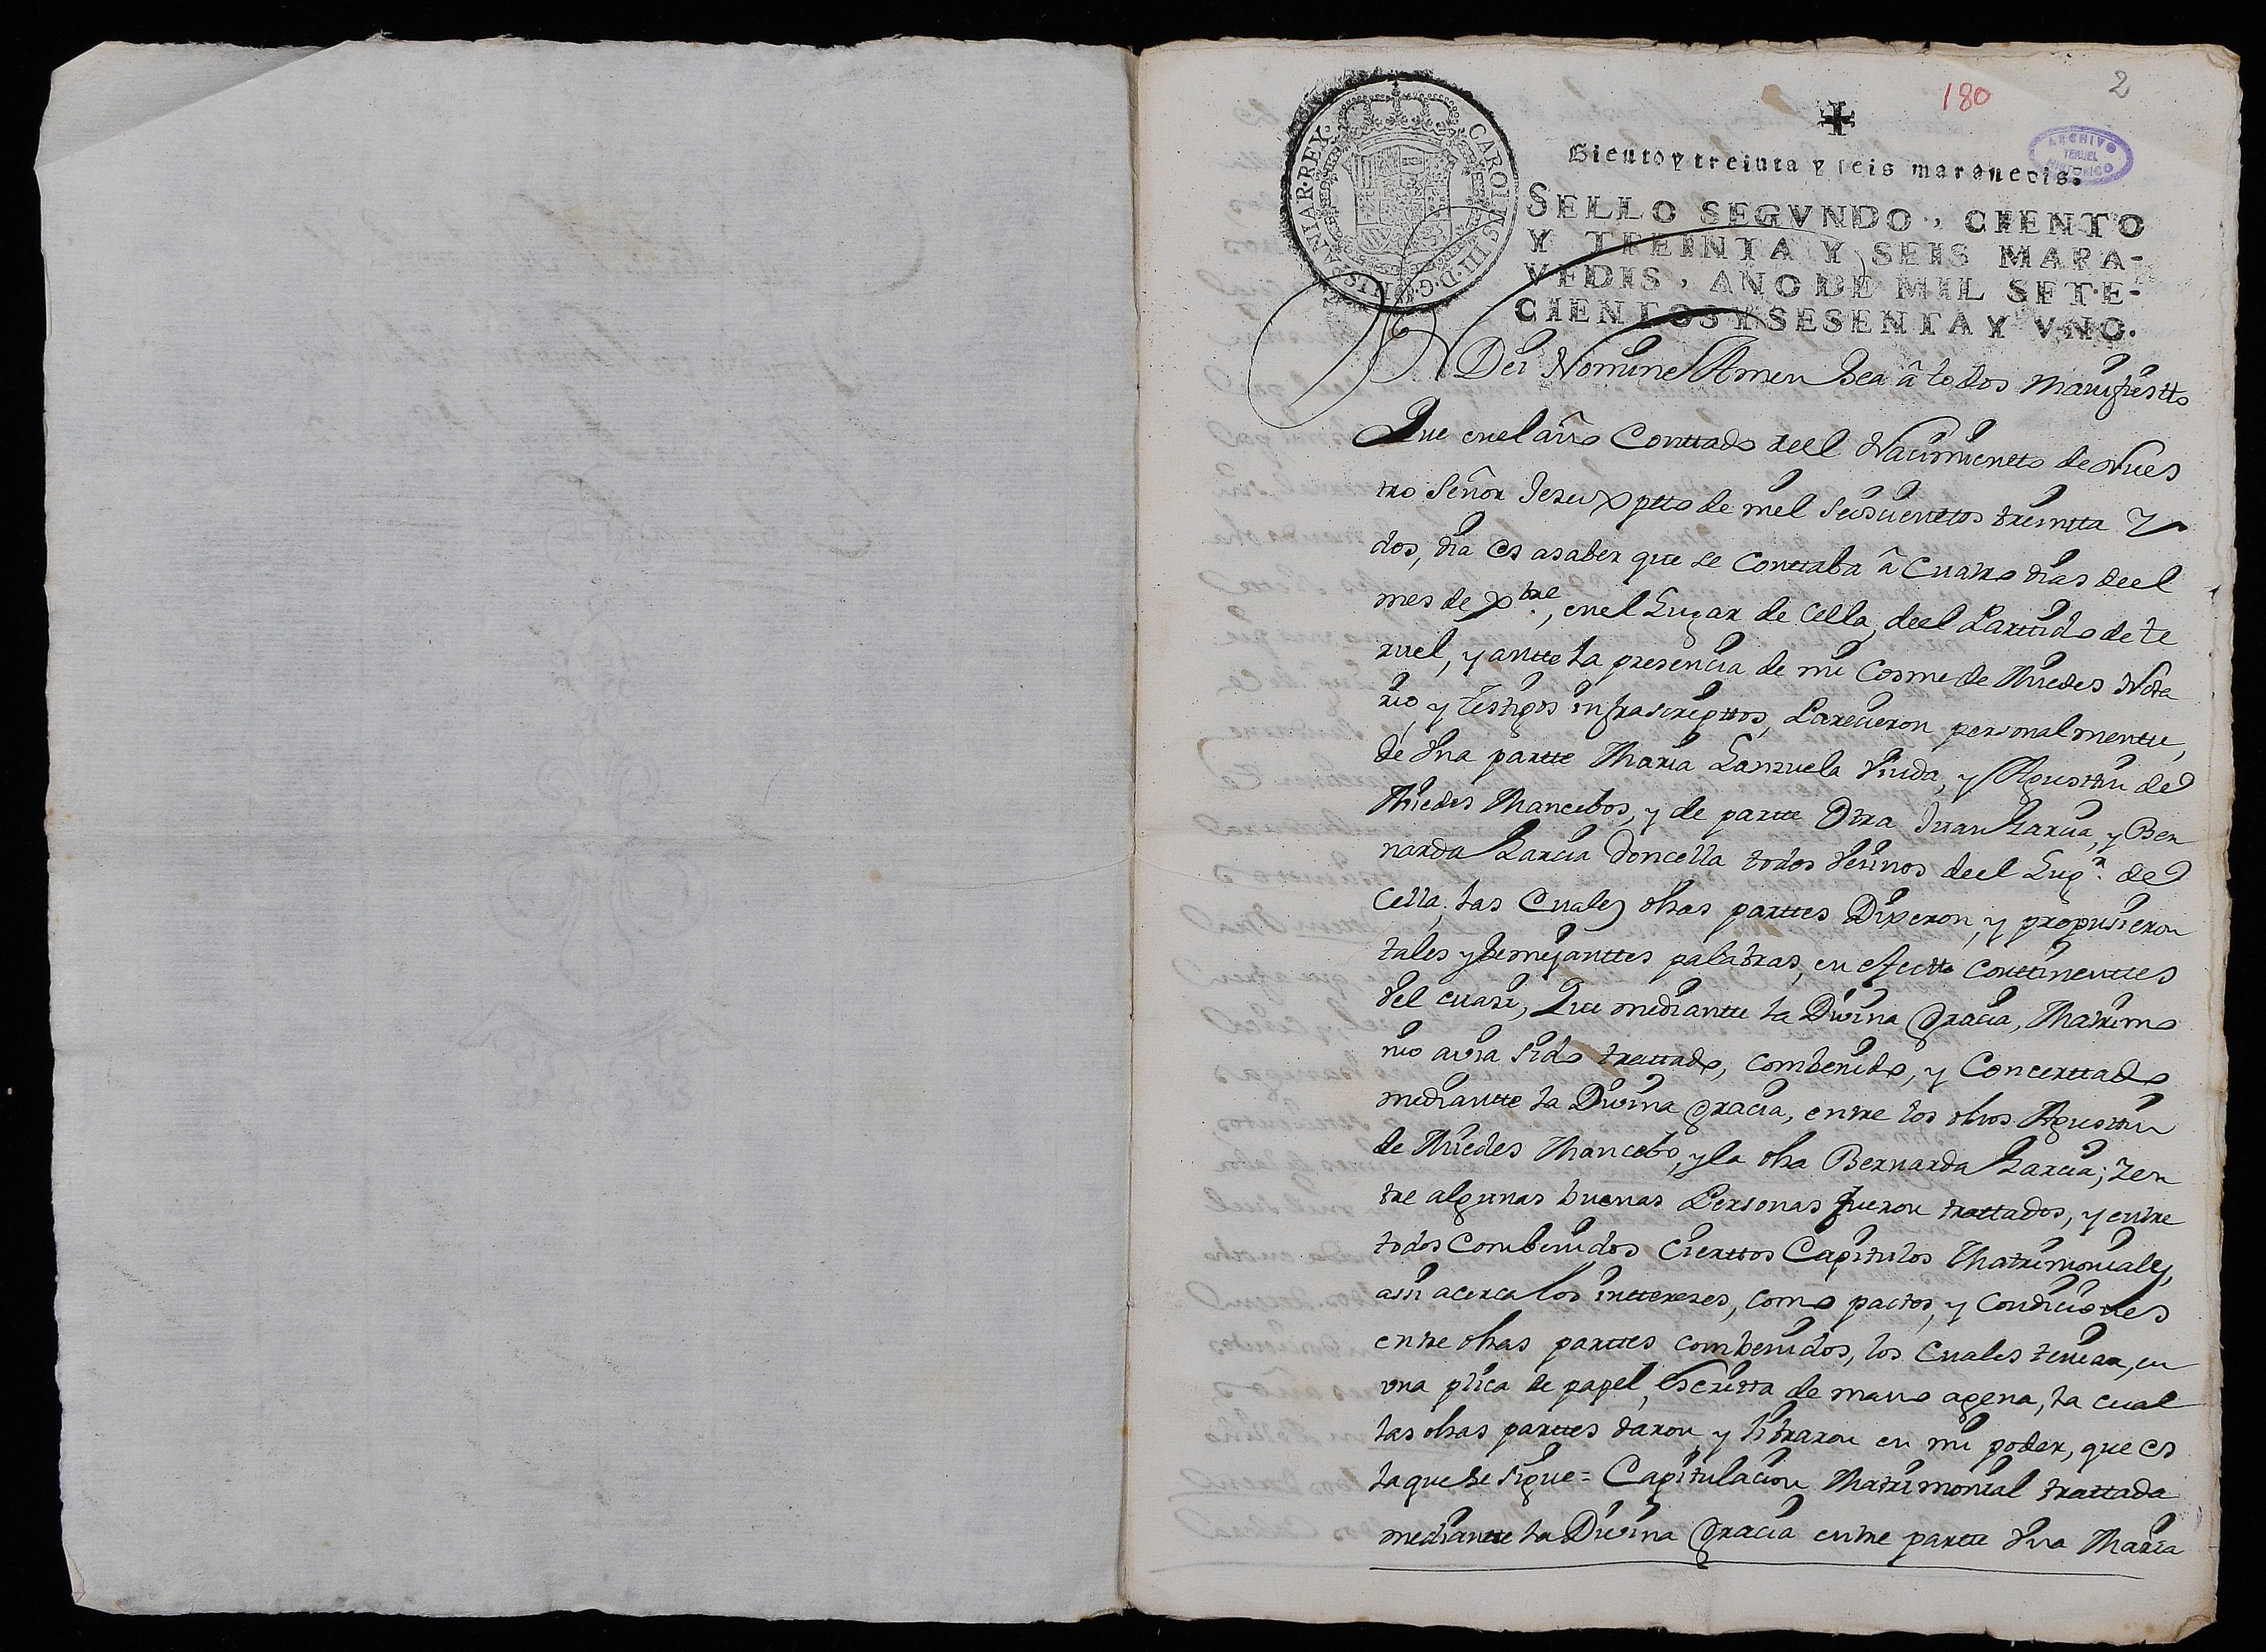 180
2
ARCHIVO
TERUEL
HISTORICO
CAROLVS·III·D·G·HISPANIAR·REX·
Cientoy treinta y seis maravedis.
SELLO SEGVNDO, CIENTO
Y TREINTA Y SEIS MARA-
VEDIS, AÑO DE MIL SETE-
CIENTOS Y SESENTA Y VNO.
IN Dei Nomine Amen Sea â todos manifiestto
Que en el año Conttado deel Nacimientto de Nues
tro Señor Jesu Xptto de mil seiscienttos treintta Y
dos, dia es asaber que se Conttaba â Cuatro dias deel
mes de Xbre, en el Lugar de Cella, deel Parttido de te
ruel, y antte la presencia de mi Cosme de Miedes Nota
rio, y testigos infrascripttos, Parecieron personalmentte,
de Vna partte Maria Lanzuela Viuda, y Agustin de
Miedes Mancebos, y de partte Otra Juan Garcia, y Ber
narda Garcia Doncella todos Vecinos deel Lugr. de
Cella; las Cuales dhas parttes Dixeron, y propusieron
tales y semejanttes palabras, en efectto conttinenttes
Vel cuasi, Que mediantte la Divina Gracia, Matrimo
nio avia sido trattado, combenido, y Concerttado
mediantte la Divina Gracia, entre los dhos Agustin
de Miedes Mancebo, y la dha Bernarda Garcia; Y en
tre algunas buenas Personas fueron trattados, y entre
todos Combenidos Cierttos Capitulos Matrimoniales,
asi acerca los inttereses, como pactos, y Condiciones
entre dhas parttes combenidos, los Cuales tenian, en
vna plica de papel, Escritta de mano agena, la cual
las dhas parttes daron y libraron en mi poder, que es
la que se sigue = Capitulacion Matrimonial trattada
mediantte la Divina Gracia entre partte Vna Maria